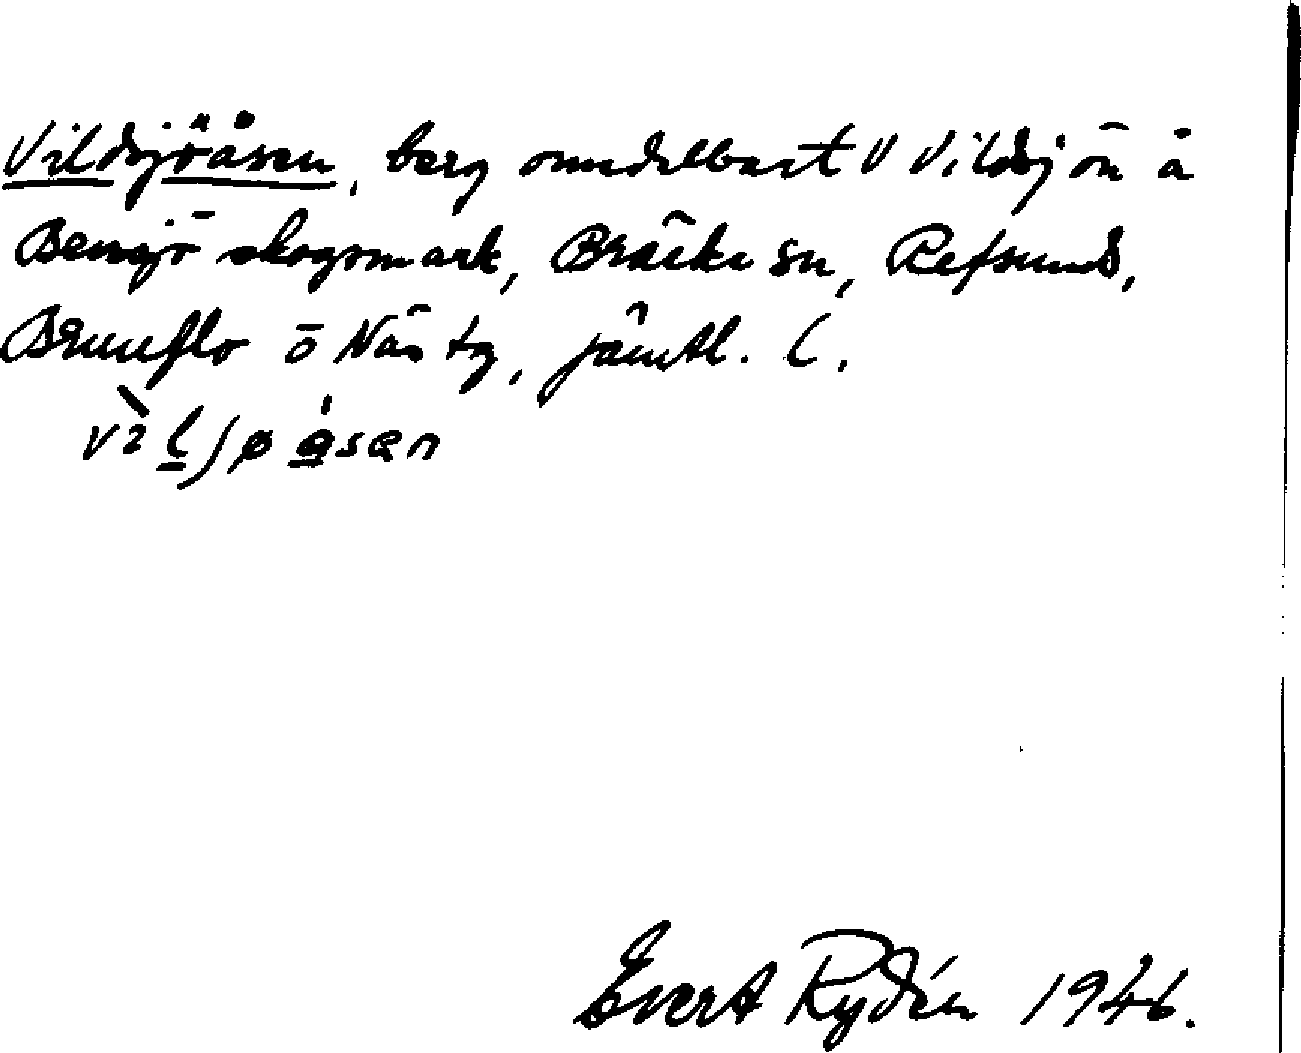 Vildsjöåsen, berg omedelbart V Vildsjön å
Bensjö skogsmark, Bräcke sn, Refsunds,
Brunflo o Näs tg, Jämtl. l.
vìlʃøåsen
Evert Rydén 1946.